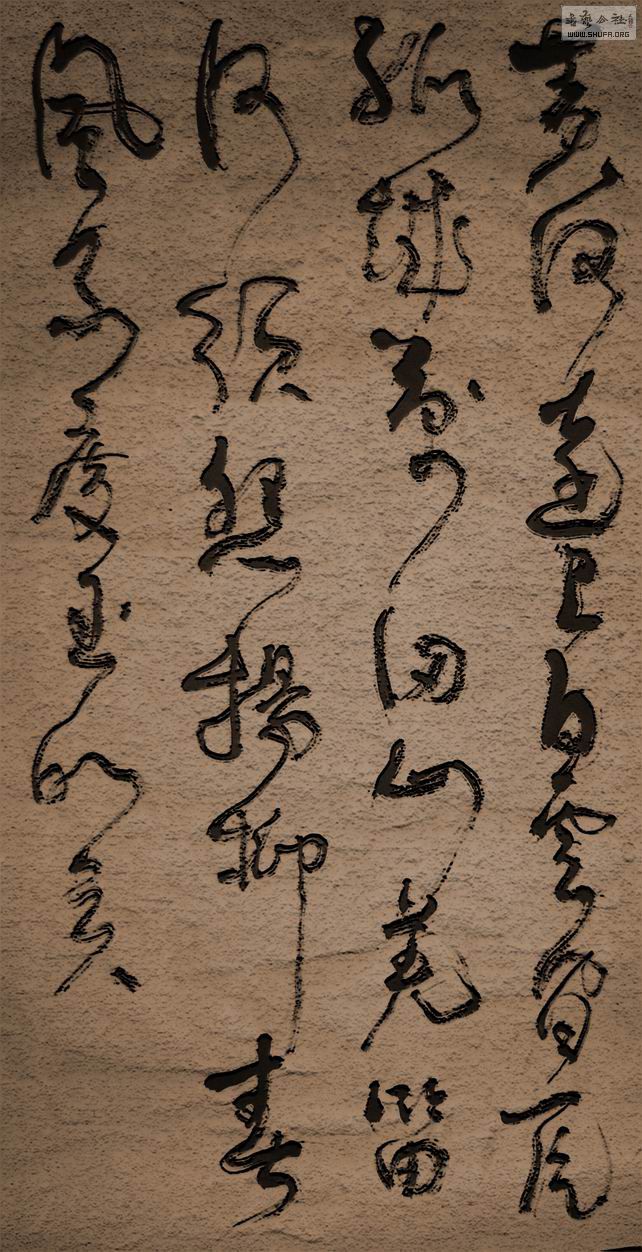 黄河遠上白雲間一片
孤城萬仞山羌笛
何須怨楊柳春
風不度玉門關
書藝公社
WWW.SHUFA.ORG